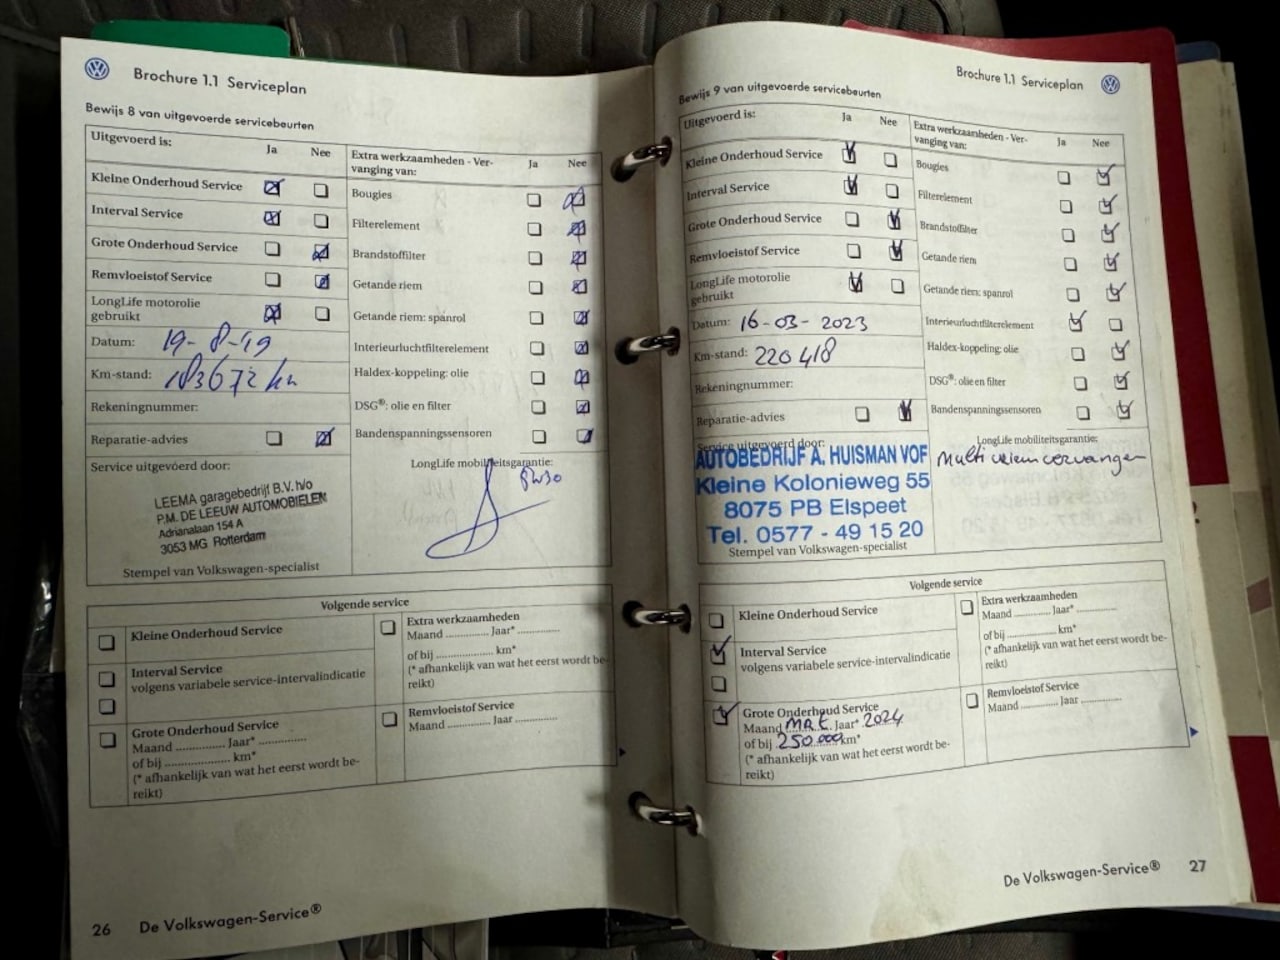 Brochure 1.1 Serviceplan
Bewijs 8 van uitgevoerde servicebeurten
Uitgevoerd is:
Ja
Nee
Kleine Onderhoud Service
Interval Service
Grote Onderhoud Service
Remvloeistof Service
LongLife motorolie
gebruikt
Datum: 19-8-19
Km-stand: 183672 km
Rekeningnummer:
Reparatie-advies
Service uitgevoerd door:
LEEMA garagebedrijf B.V. h/o
P.M. DE LEEUW AUTOMOBIELEN
Adrianalaan 154 A
3053 MG Rotterdam
Stempel van Volkswagen-specialist
Extra werkzaamheden - Ver-
vanging van:
Ja
Nee
Bougies
Filterelement
Brandstoffilter
Getande riem
Getande riem: spanrol
Interieurluchtfilterelement
Haldex-koppeling: olie
DSG®: olie en filter
Bandenspanningssensoren
LongLife mobiliteitsgarantie:
5W30
Volgende service
Kleine Onderhoud Service
Interval Service
volgens variabele service-intervalindicatie
Grote Onderhoud Service
Maand .............. Jaar* ..............
of bij .................... km*
(* afhankelijk van wat het eerst wordt be-
reikt)
Extra werkzaamheden
Maand ............. Jaar* .............
of bij .................. km*
(* afhankelijk van wat het eerst wordt be-
reikt)
Remvloeistof Service
Maand ............. Jaar .............
26 De Volkswagen-Service®
Brochure 1.1 Serviceplan
Bewijs 9 van uitgevoerde servicebeurten
Uitgevoerd is:
Ja
Nee
Kleine Onderhoud Service
Interval Service
Grote Onderhoud Service
Remvloeistof Service
LongLife motorolie
gebruikt
Datum: 16-03-2023
Km-stand: 220418
Rekeningnummer:
Reparatie-advies
Service uitgevoerd door:
AUTOBEDRIJF A. HUISMAN VOF
Kleine Kolonieweg 55
8075 PB Elspeet
Tel. 0577 - 49 15 20
Stempel van Volkswagen-specialist
Extra werkzaamheden - Ver-
vanging van:
Ja
Nee
Bougies
Filterelement
Brandstoffilter
Getande riem
Getande riem: spanrol
Interieurluchtfilterelement
Haldex-koppeling: olie
DSG®: olie en filter
Bandenspanningssensoren
LongLife mobiliteitsgarantie:
Multi riem vervangen
Volgende service
Kleine Onderhoud Service
Interval Service
volgens variabele service-intervalindicatie
Grote Onderhoud Service
Maand MRT. Jaar* 2024
of bij 250.000 km*
(* afhankelijk van wat het eerst wordt be-
reikt)
Extra werkzaamheden
Maand ............. Jaar* .............
of bij .................. km*
(* afhankelijk van wat het eerst wordt be-
reikt)
Remvloeistof Service
Maand ............. Jaar .............
De Volkswagen-Service® 27